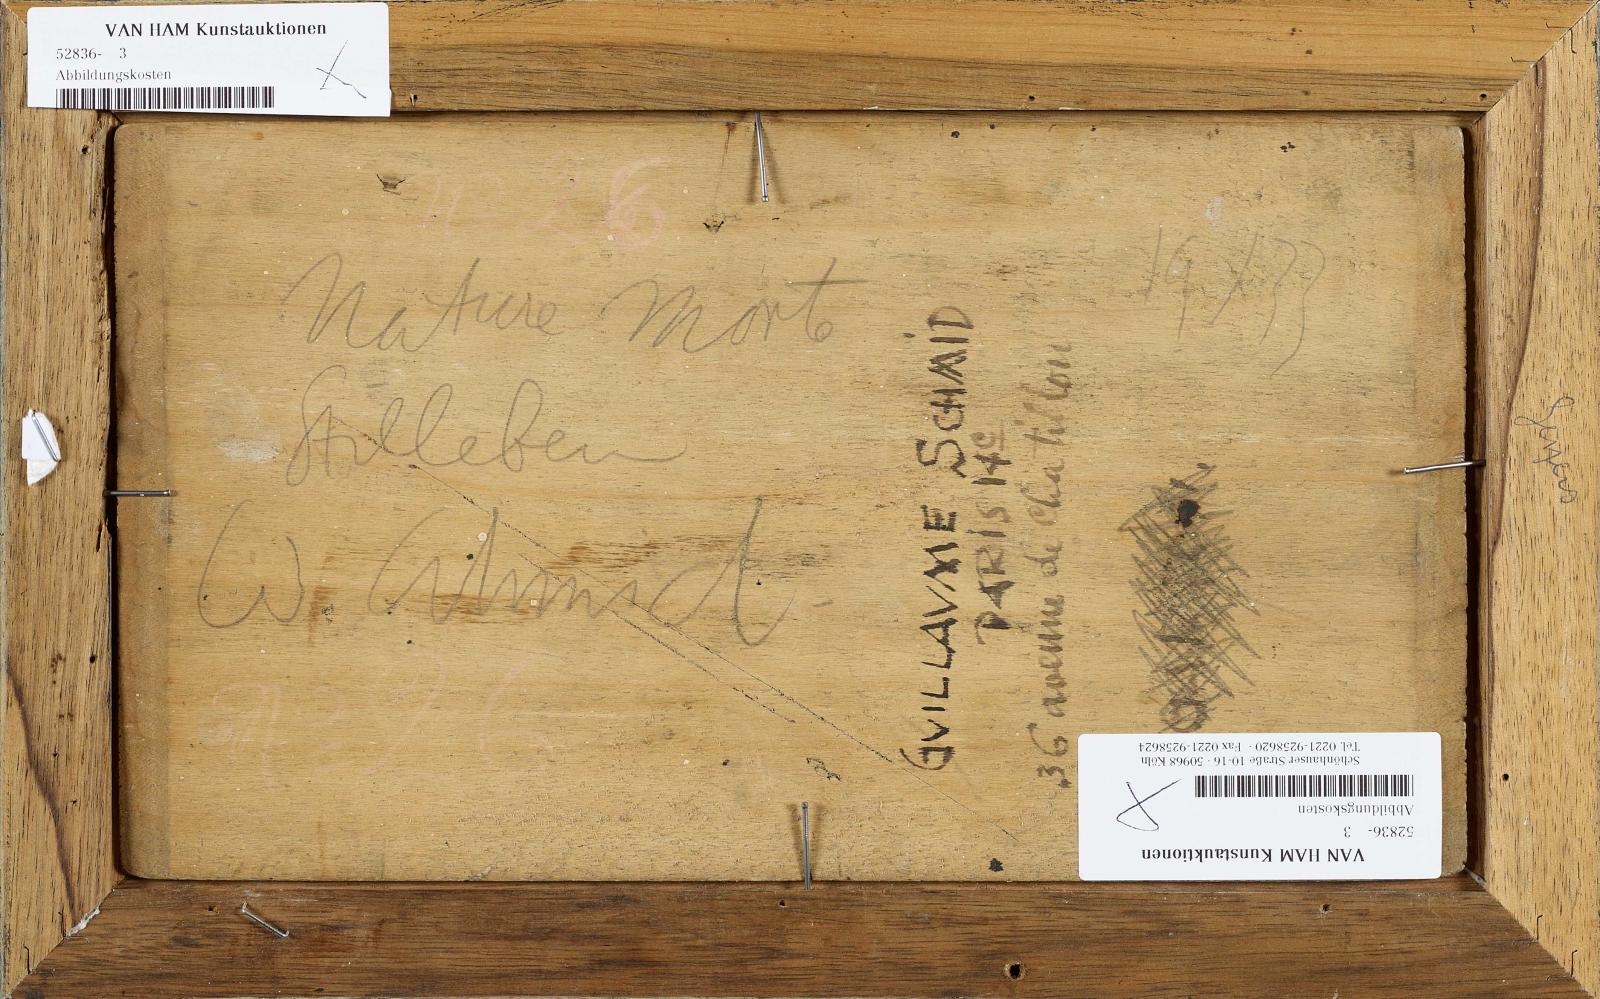 VAN HAM Kunstauktionen
52836- 3
Abbildungskosten
N-26
Nature Morte
Stilleben
W. Schmid
GVILLAVME SCHMID
PARIS 14e
36 avenue de chatillon
VAN HAM Kunstauktionen
52836- 3
Abbildungskosten
Schönhauser Straße 10-16 · 50968 Köln
Tel. 0221-9258620 · Fax 0221-9258624